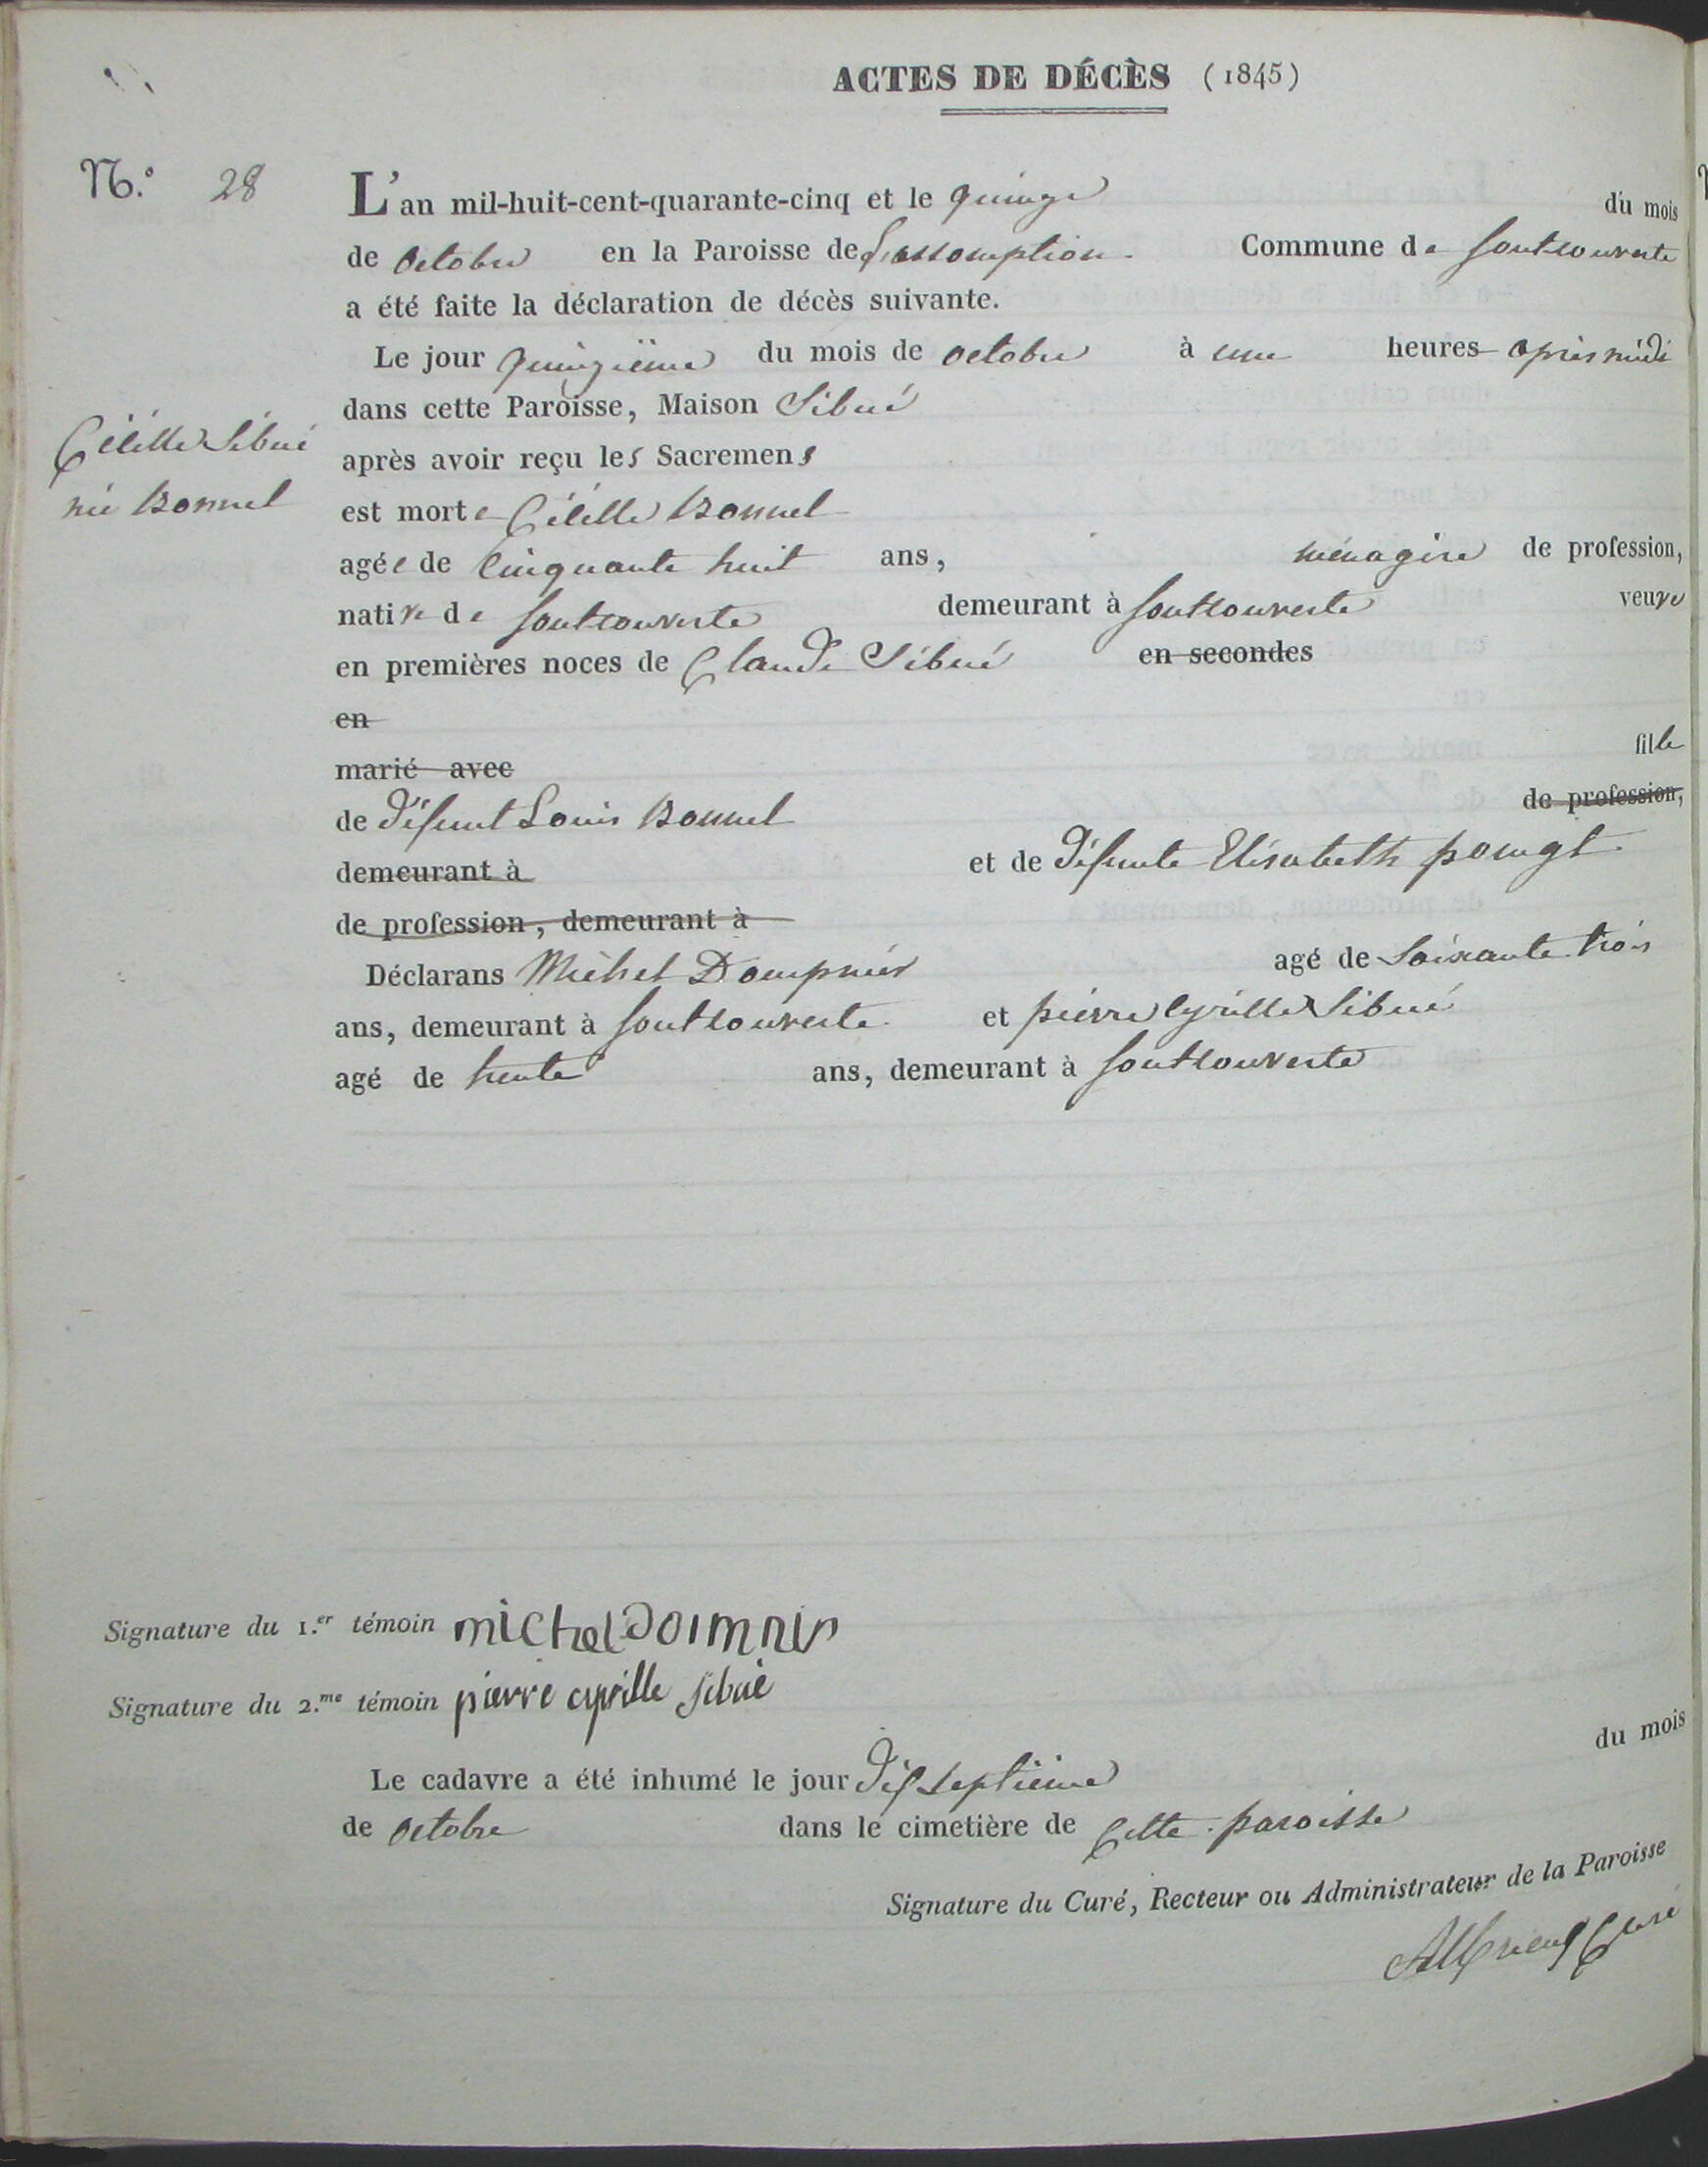 ACTES DE DÉCÈS (1845)
N.° 28
L'an mil-huit-cent-quarante-cinq et le quinze du mois
de octobre en la Paroisse de L'assomption. Commune de fontcouverte
a été faite la déclaration de décès suivante.
Le jour quinzième du mois de octobre à une heures après midi
dans cette Paroisse, Maison Sibué
Cécille Sibué
née Bonnel
après avoir reçu les Sacremens
est morte Cécille Bonnel
agée de Cinquante huit ans, ménagère de profession,
native de fontcouverte demeurant à fontcouverte veuve
en premières noces de Claude Sibué en secondes
en
marié avec fille
de défunt Louis Bonnel de profession,
demeurant à et de défunte Elisabeth pougt
de profession, demeurant à
Déclarans Michel Dompnier agé de Soixante trois
ans, demeurant à fontcouverte et pierre Cyrille Sibué
agé de trente ans, demeurant à fontcouverte
Signature du 1.er témoin michel
Signature du 2.me témoin pierre cyrille sibué
Le cadavre a été inhumé le jour dix septième du mois
de octobre dans le cimetière de Cette paroisse
Signature du Curé, Recteur ou Administrateur de la Paroisse
Curé